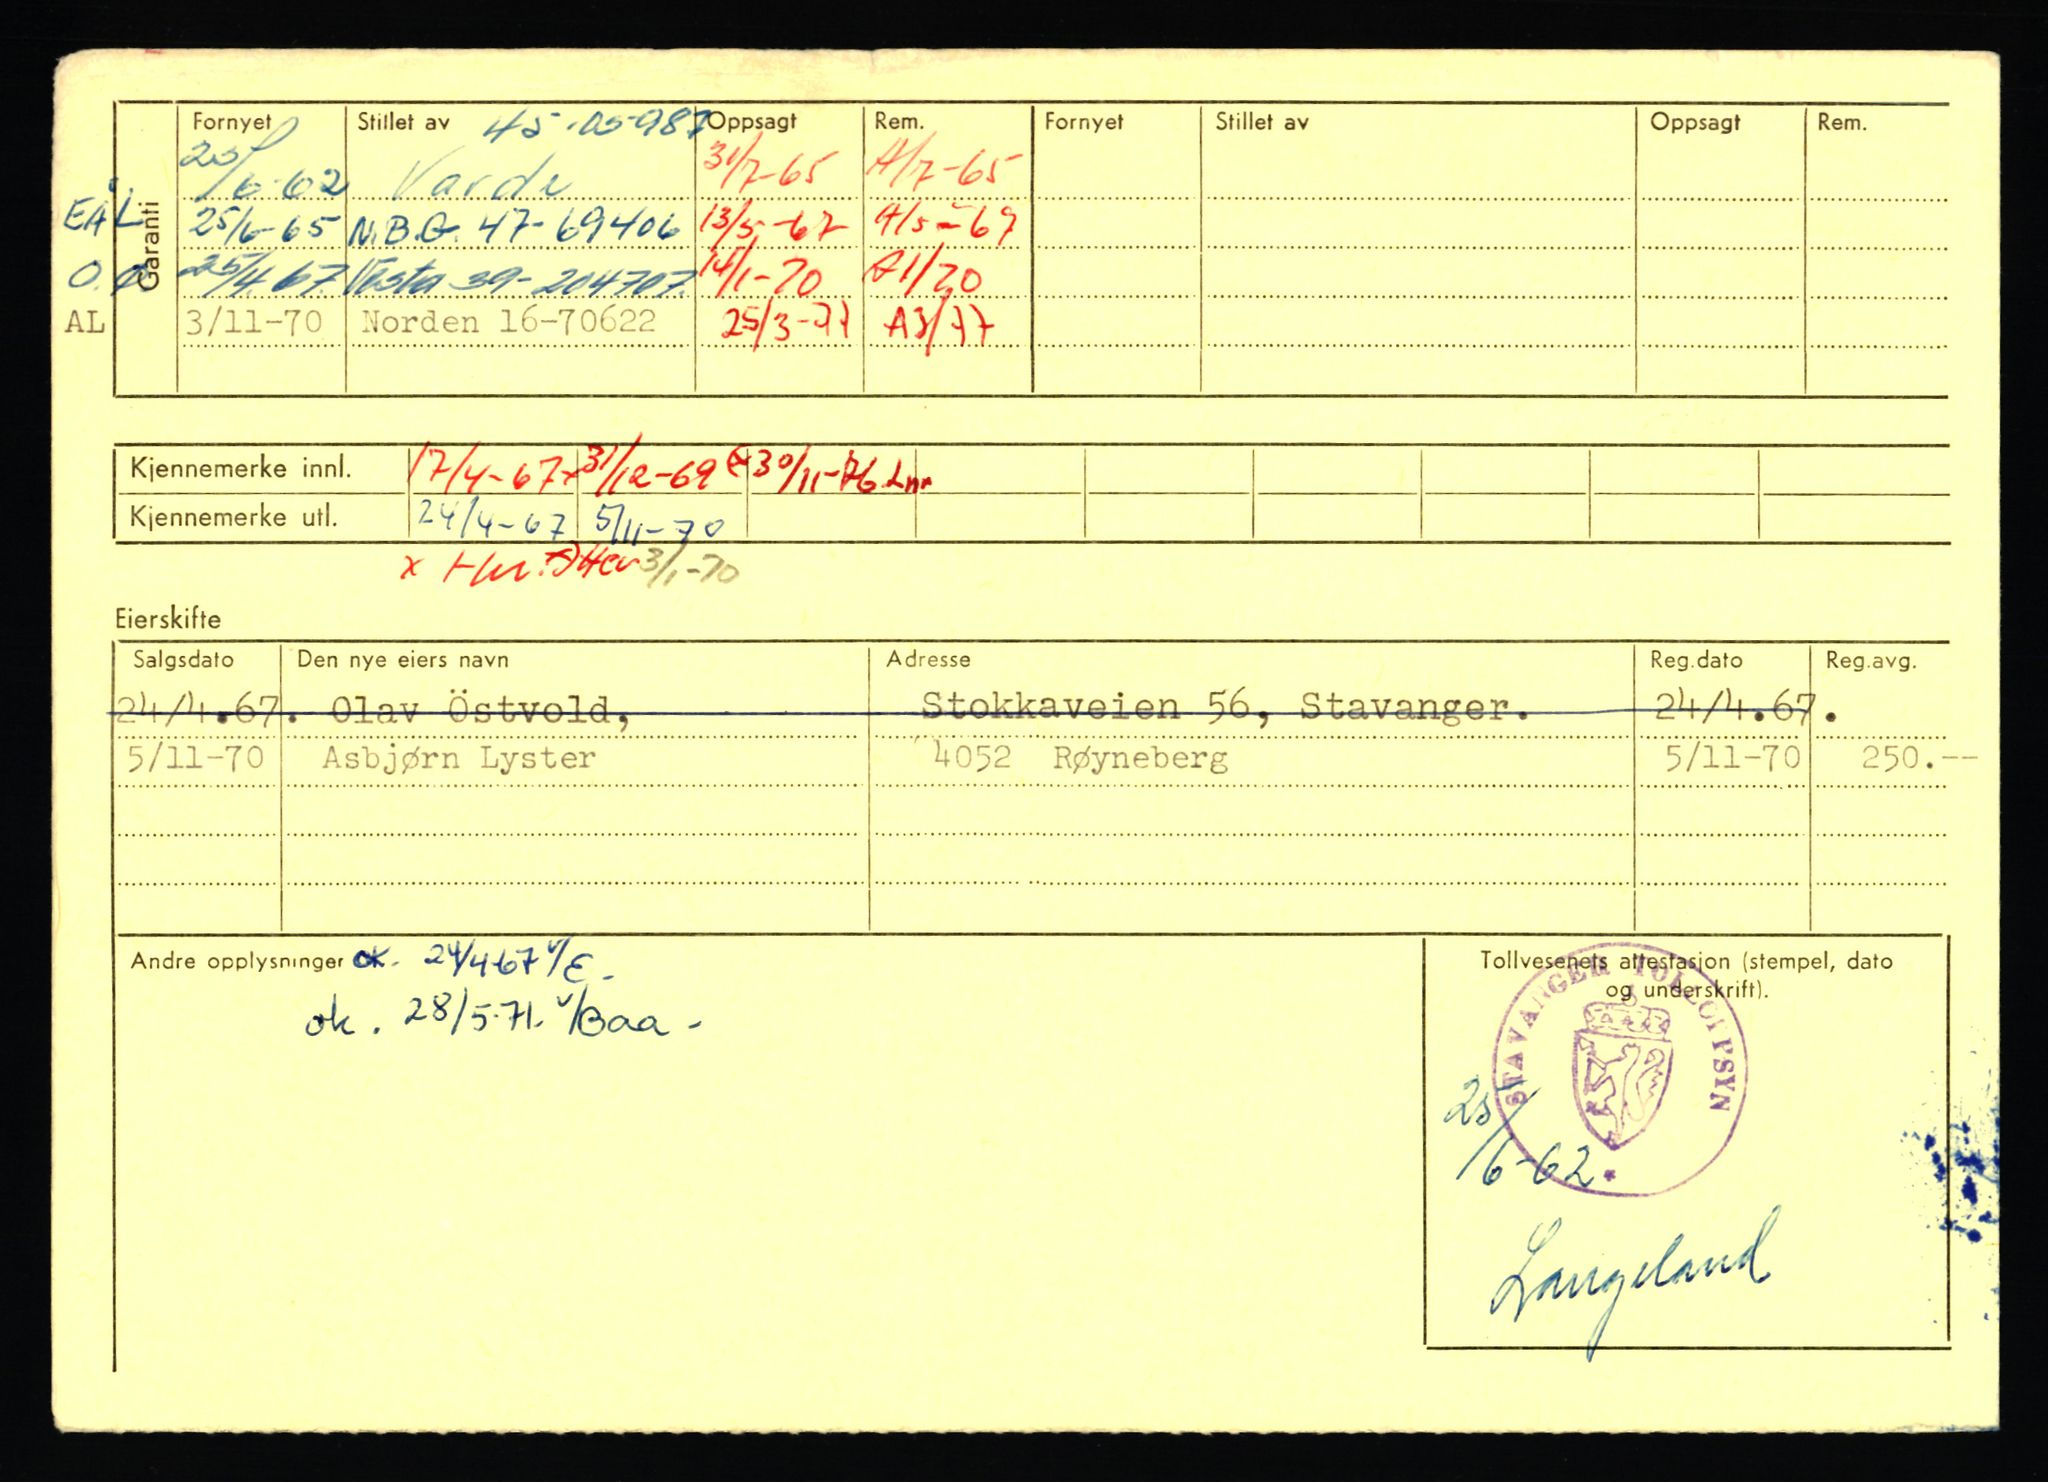 Garanti
Fornyet Stillet av 45-05987 Oppsagt Rem. Fornyet Stillet av Oppsagt Rem.
25/6-62 Varde 31/7-65 A/7-65
EÅL 25/6-65 N.B.G. 47-69406 13/5-67 A/5-69
O.Ø 25/4.67. Vesta 39-204707. 14/1-70 A1/70
AL 3/11-70 Norden 16-70622 25/3-77 A3/77
Kjennemerke innl. 17/4-67x 31/12-69 30/11-76 Lnr
Kjennemerke utl. 24/4-67 5/11-70
x 3/1-70
Eierskifte
Salgsdato Den nye eiers navn Adresse Reg.dato Reg.avg.
24/4.67. Olav Östvold, Stokkaveien 56, Stavanger. 24/4.67.
5/11-70 Asbjørn Lyster 4052 Røyneberg 5/11-70 250.--
Andre opplysninger ok. 24/4-67 v/E.
ok. 28/5-71. v/Baa-
Tollvesenets attestasjon (stempel, dato
og underskrift).
STAVANGER TOLLOPPSYN
25/6-62
Langeland